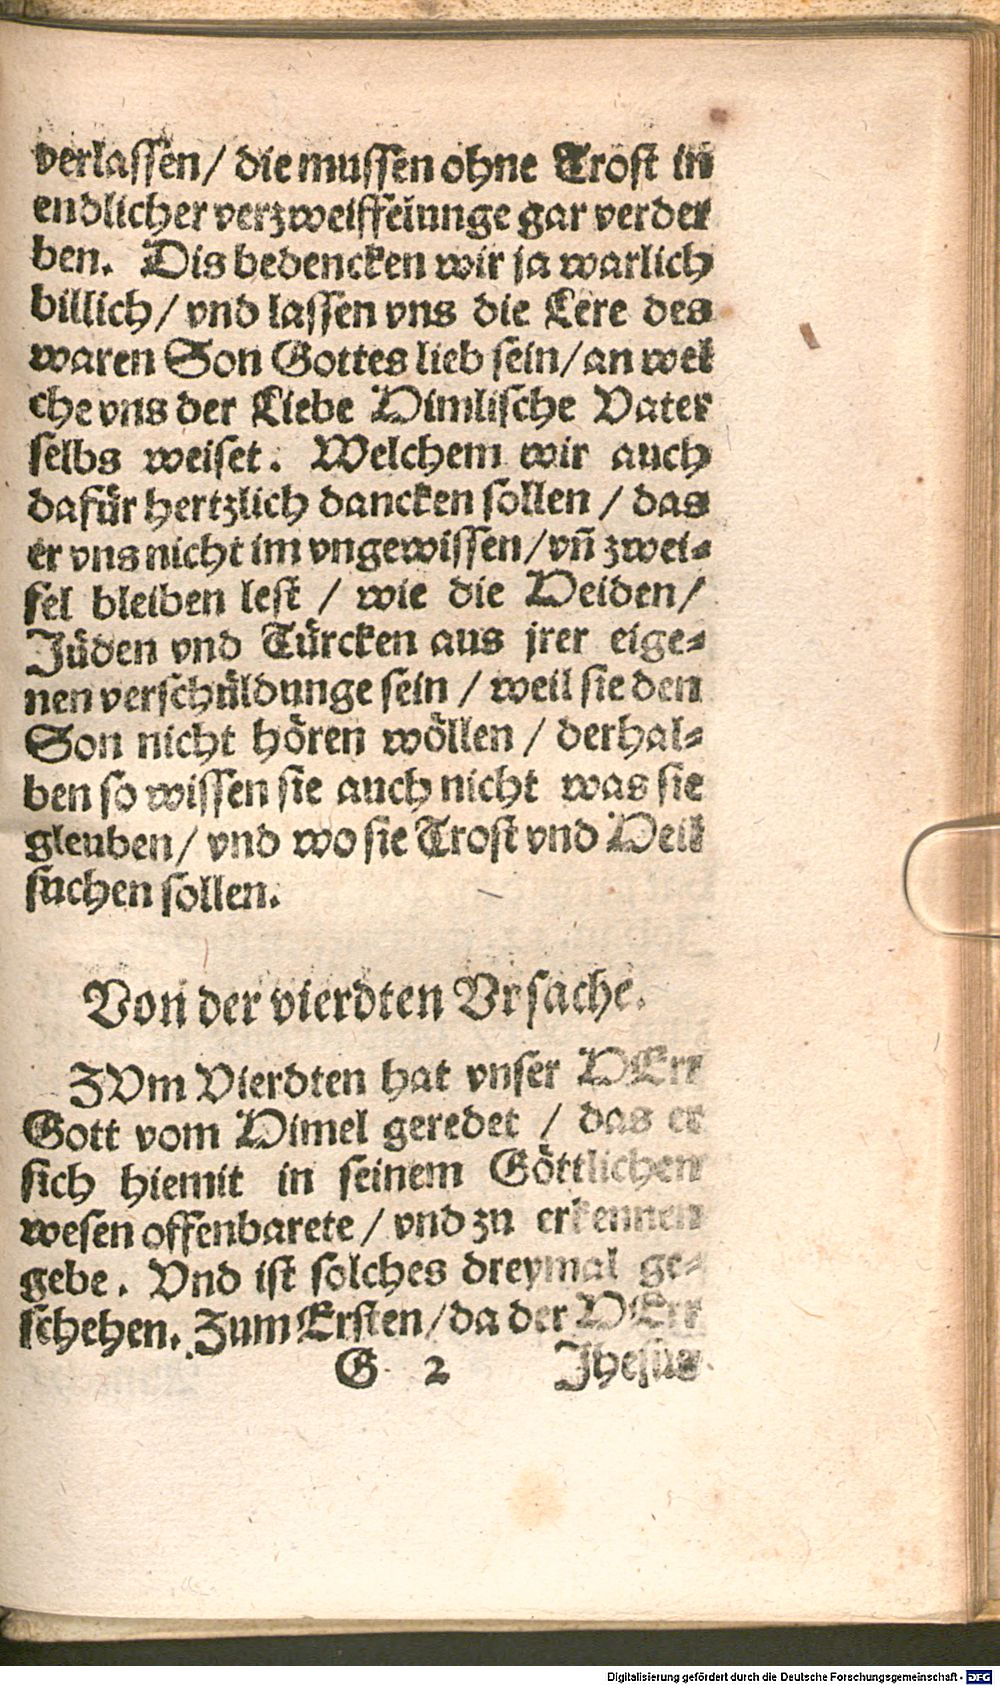 verlassen/ die mussen ohne Trost in
endlicher verzweiffelunge gar verder
ben. Dis bedencken wir ja warlich
billich/ vnd lassen vns die Lere des
waren Son Gottes lieb sein/ an wel
che vns der Liebe Himlische Vater
selbs weiset. Welchem wir auch
dafür hertzlich dancken sollen / das
er vns nicht im vngewissen/ vñ zwei-
fel bleiben lest / wie die Heiden/
Jüden vnd Türcken aus jrer eige-
nen verschüldunge sein / weil sie den
Son nicht hören wöllen / derhal-
ben so wissen sie auch nicht was sie
gleuben/ vnd wo sie Trost vnd Heil
suchen sollen.
Von der vierdten Vrsache.
ZVm Vierdten hat vnser HErr
Gott vom Himel geredet / das er
sich hiemit in seinem Göttlichen
wesen offenbarete / vnd zu erkennen
gebe. Vnd ist solches dreymal ge-
schehen. Zum Ersten/ da der HErr
G 2 Jhesus
Digitalisierung gefördert durch die Deutsche Forschungsgemeinschaft - DFG